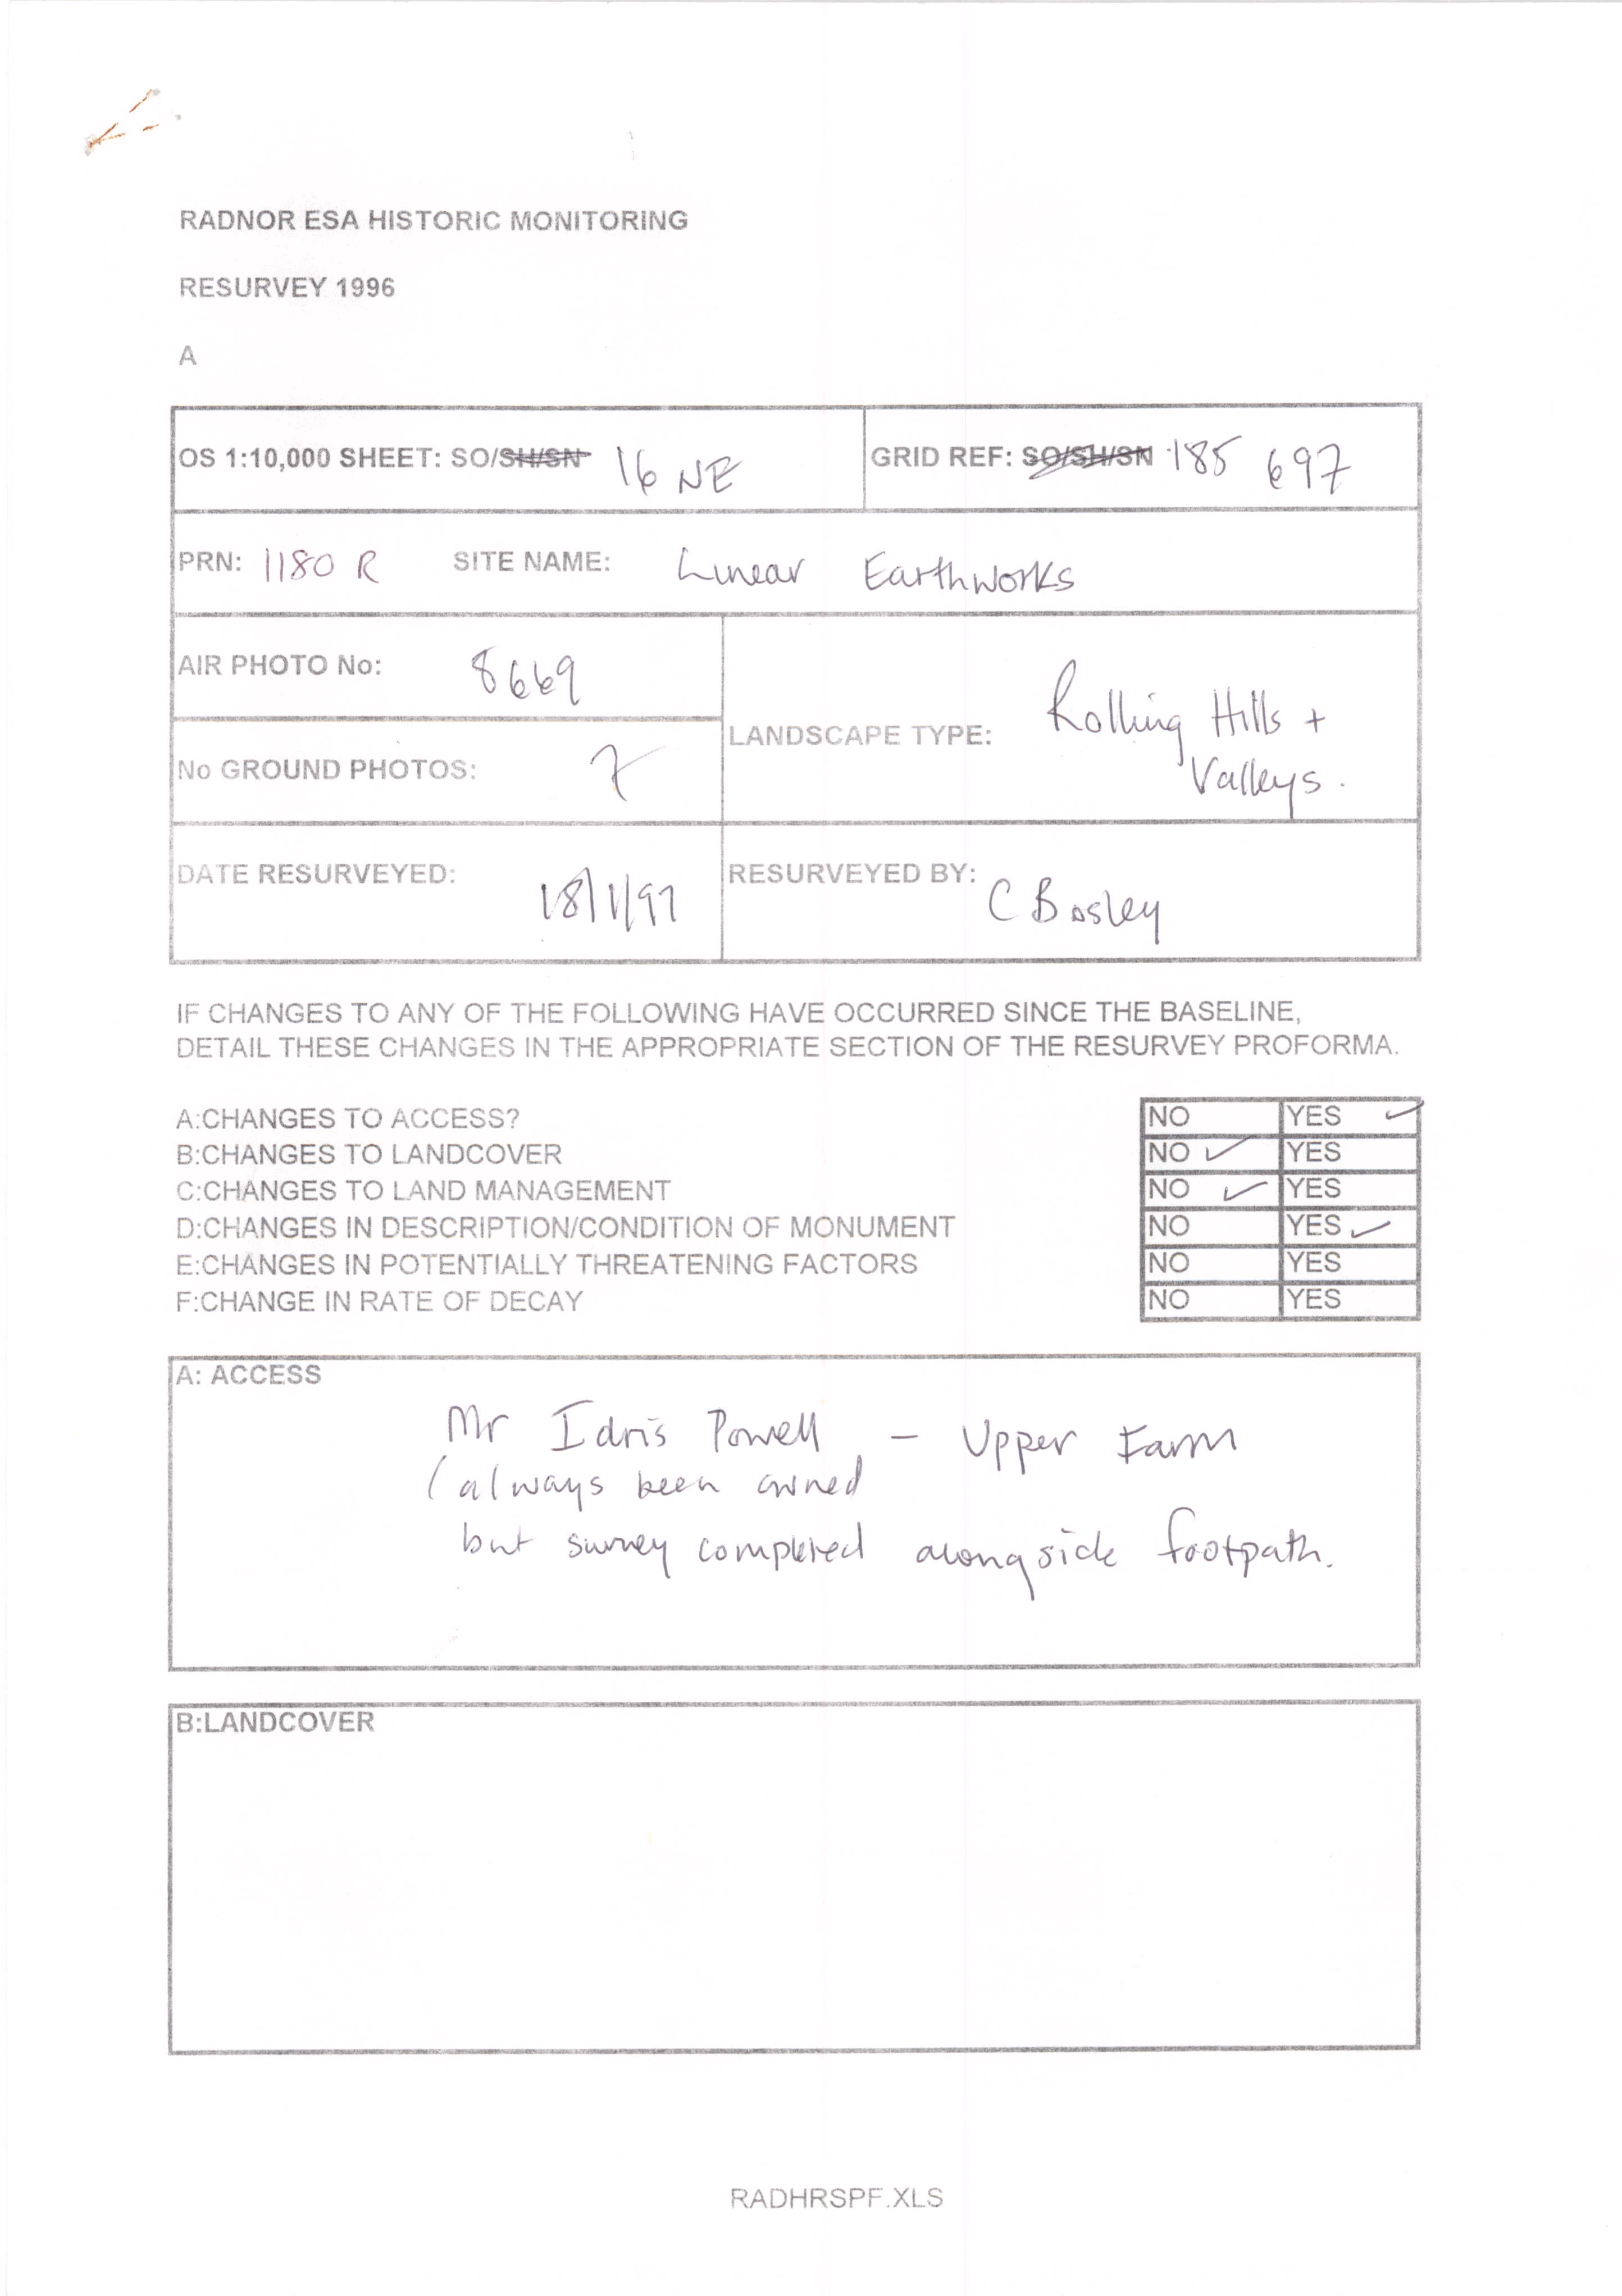 RADNOR ESA HISTORIC MONITORING
RESURVEY 1996
A
OS 1:10,000 SHEET: SO/SH/SN 16 NE GRID REF: SO/SH/SN 185 697
PRN: 1180 R SITE NAME: Linear Earthworks
AIR PHOTO No: 8669
LANDSCAPE TYPE: Rolling Hills +
Valleys.
No GROUND PHOTOS: 7
DATE RESURVEYED: 18/1/97 RESURVEYED BY: C Bosley
IF CHANGES TO ANY OF THE FOLLOWING HAVE OCCURRED SINCE THE BASELINE,
DETAIL THESE CHANGES IN THE APPROPRIATE SECTION OF THE RESURVEY PROFORMA.
A:CHANGES TO ACCESS? NO YES ✓
B:CHANGES TO LANDCOVER NO ✓ YES
C:CHANGES TO LAND MANAGEMENT NO ✓ YES
D:CHANGES IN DESCRIPTION/CONDITION OF MONUMENT NO YES ✓
E:CHANGES IN POTENTIALLY THREATENING FACTORS NO YES
F:CHANGE IN RATE OF DECAY NO YES
A: ACCESS
Mr Idris Powell - Upper Farm
(always been owned
but survey completed alongside footpath.
B:LANDCOVER
RADHRSPF.XLS